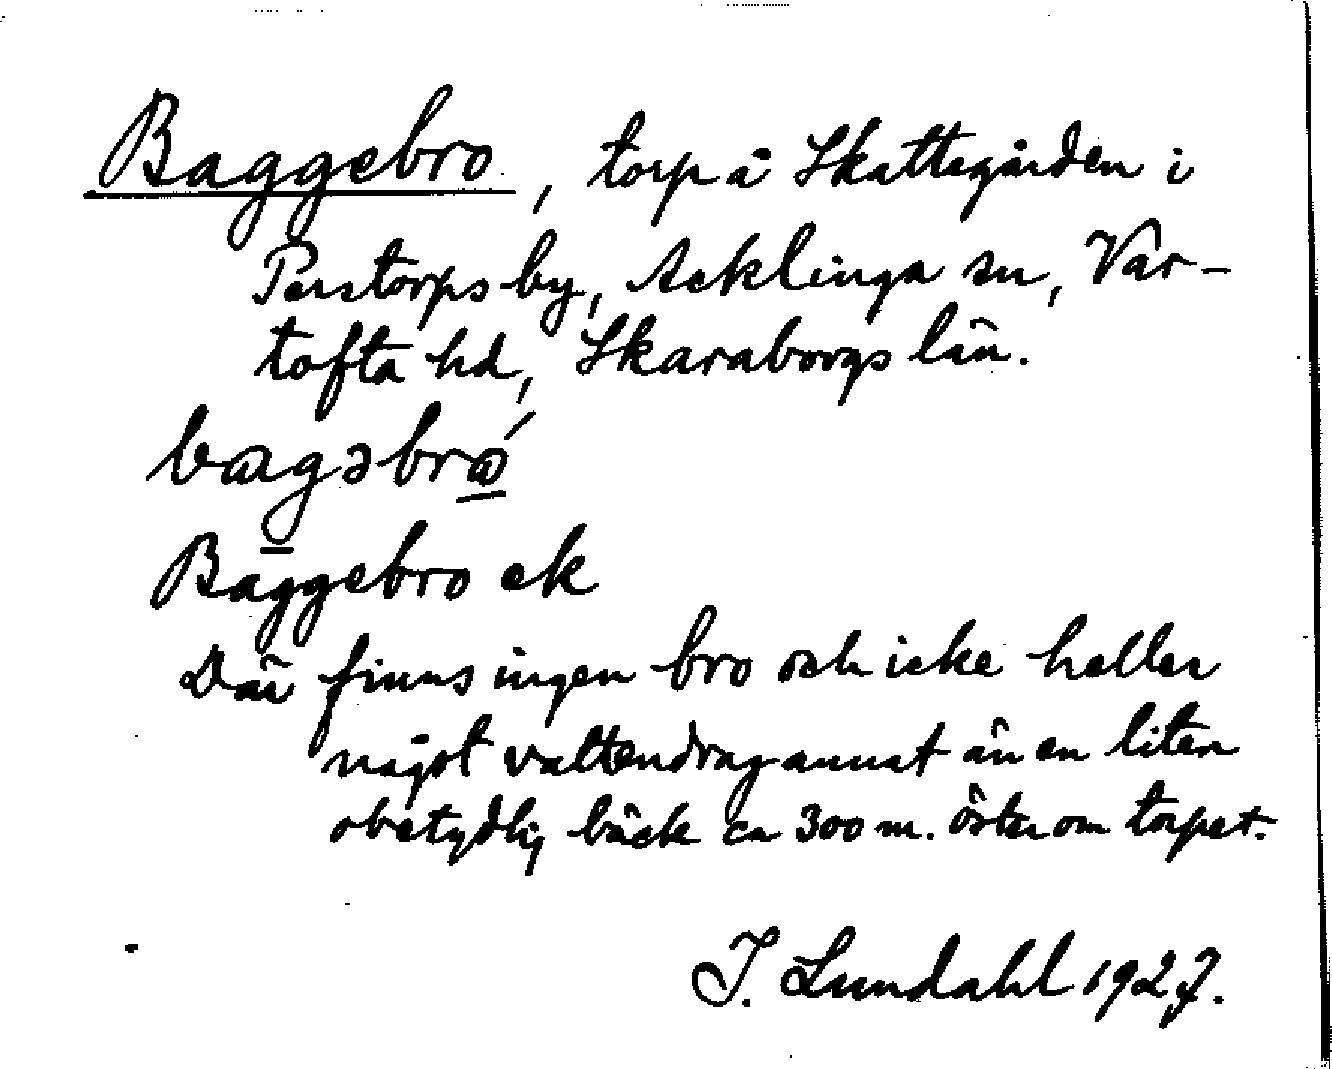 Baggebro, torp å Skattegården i
Perstorps by, Acklinga sn, Var-
tofta hd, Skaraborgs län.
bag̠əbrώ̠
Baggebro ek
Där finns ingen bro och icke heller
något vattendrag annat än en liten
obetydlig bäck ca 300 m. öster om torpet.
I. Lundahl 1927.